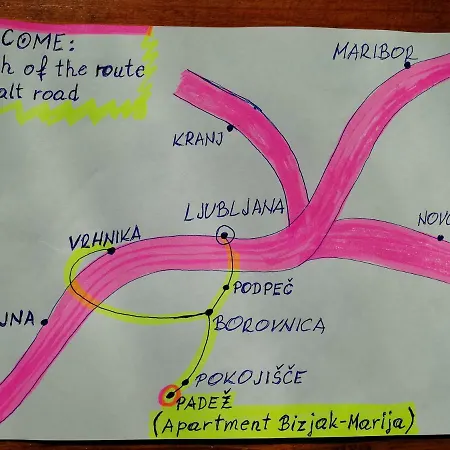 COME:
h of the route
alt road
MARIBOR
KRANJ
LJUBLJANA
VRHNIKA
NOVO
PODPEČ
JNA
BOROVNICA
POKOJIŠČE
PADEŽ
(Apartment Bizjak-Marija)